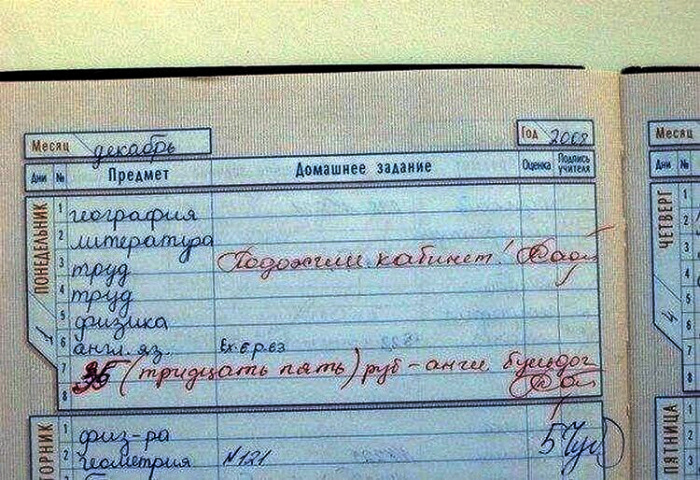 Месяц декабрь Год 2008 Месяц
Дни № Предмет Домашнее задание Оценка Подпись учителя Дни №
ПОНЕДЕЛЬНИК 1
1 география
2 литература
3 труд Подожгли кабинет!
4 труд
5 физика
6 англ. яз. Ex. 6 p. 63
7 35 (тридцать пять) руб - англ. бульдог
8
ЧЕТВЕРГ 4
1
2
3
4
ТОРНИК
1 физ-ра
2 геометрия №121 5
ПЯТНИЦА